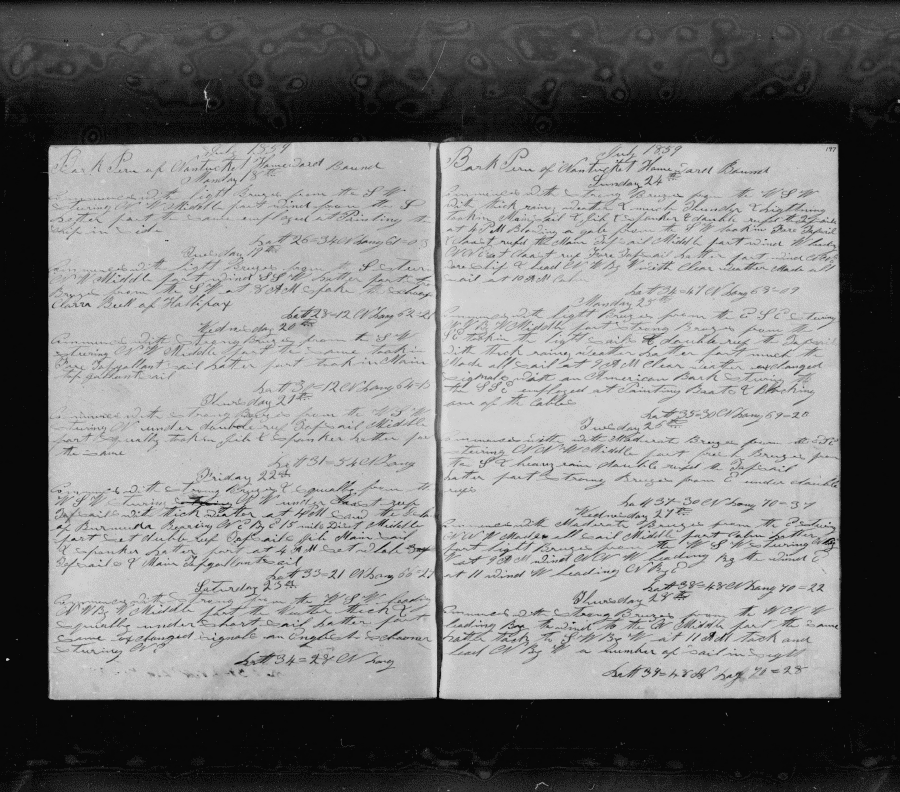 July 1859
Bark Peru of Nantucket Homeward Bound
Monday 18th
Commences with light Breezes from the S W
Steering N W Middle part wind from the S
Latter part the same employed at Painting the
Ship in side
Latt 26=34 N Long 61=03
Tuesday 19th
Commences with light Breezes from the S Steering
N W Middle part wind S S W Latter part the
Breeze from the S W at 8 AM spoke the
Clarra Bell of Hallifax
Latt 28=12 N Long 62=21
Wednesday 20th
Commences with strong Breezes from the S W
Steering N W Middle part the same took in
Fore Topgallant sail Latter part took in Main
Topgallant sail
Latt 30=12 N Long
Thursday 21th
Commences with strong Breezes from the W S W
Steering N under double reef Topsails Middle
part squally took in jib & spanker Latter part
the same
Latt 31=54 N Long
Friday 22th
Commences with strong Breezes & squally from the
W S W steering N W under Closest reef
Topsails with thick weather at 4 PM
of Burmuda Bearing N E By E 15 mile Distt Middle
part set double reef Topsails jib Main sail
& spanker Latter part at 4 AM set whole
Topsails & Main Topgallant sail
Latt 33=21 N Long
Saturday 23th
Commences with strong from the W S W steering
N W By W Middle part the Weather thick &
squally under short sail Latter part
same exchanged signals an English Schooner
Steering N E
Latt 34=28 N Long
197
July 1859
Bark Peru of Nantucket Homeward Bound
Sunday 24th
Commences with strong Breezes from the W S W
With thick rainy weather & much Thunder & Lightning
took in Mainsail & jib & spanker & double reeft the Topsails
at 4 PM Blowing a gale from the S W took in Fore Topsail
& Closest reeft the Main Topsail Middle part wind W
N N W set Closest reef Fore Topsail Latter part wind
wore ship & head N W By W with Clear weather Made all
sail at 10 AM
Latt 34=47 N Long 68=09
Monday 25th
Commences with light Breezes from the E S E steering
N W B W Middle part strong Breezes from the
S E took in the light sails & double reef the Topsails
With thick rainy weather Latter part much the
Made all sail at 9 AM Clear weather exchanged
signals with an American Bark steering
to the S S E employed at Painting Boats & Blacking
one of the Cables
Latt 35=30 N Long 69=20
Tuesday 26th
Commences with Moderate Breezes from the E S E
Steering N N W Middle part fresh Breezes from
the S & heavy rain double reeft the Topsails
Latter part strong Breezes from E under double
reefs
Latt 37=30 N Long 70=37
Wednesday 27th
Commences with Moderate Breezes from the E steering
N W W Made all sail Middle part Calm Latter
part light Breezes from the W S W steering N By
W at 9 AM wind N N W leading By the wind E
at 11 wind W leading N By E
Latt 38=48 N Long 70=22
Thursday 28th
Commences with strong Breezes from the W N W
leading By the wind to the N Middle part the same
the S W By W at 11 AM tack and
head N By W a number of sail in sight
Latt 39=48 N Long 70=28